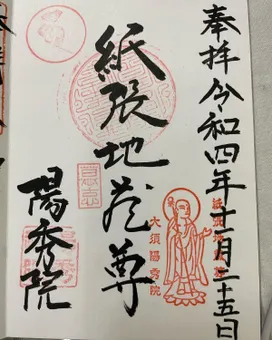 奉拝 令和四年十一月二十五日
紙張地蔵尊
陽秀院
紙張地蔵尊
大須陽秀院